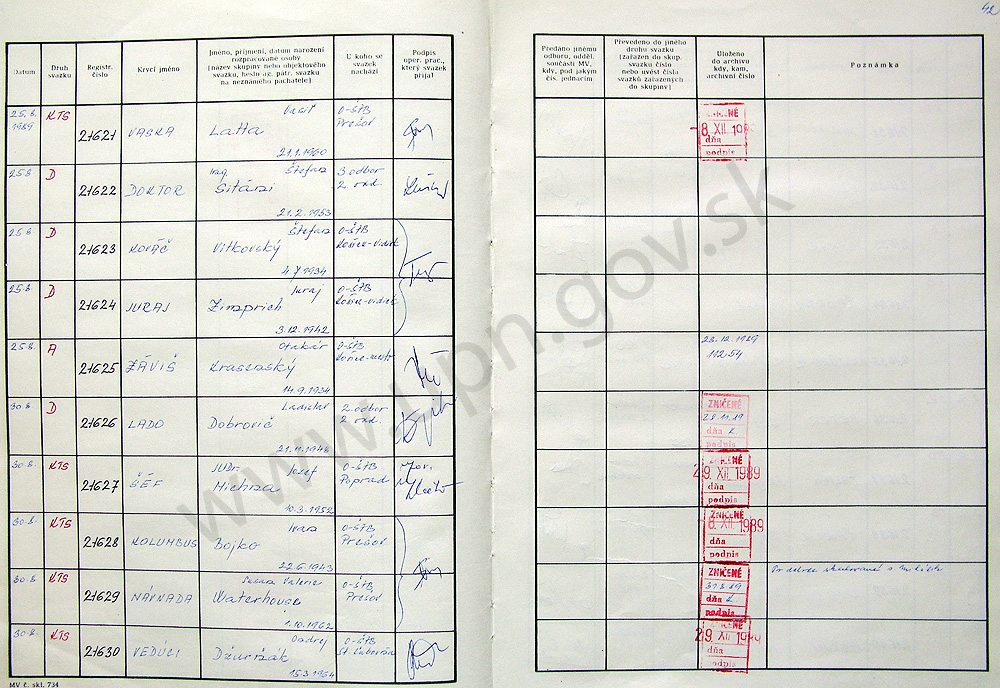 42
Datum
Druh
svazku
Registr.
číslo
Krycí jméno
Jméno, příjmení, datum narození
rozpracované osoby
(název skupiny nebo objektového
svazku, heslo ag. pátr. svazku
na neznámého pachatele)
U koho se
svazek
nachází
Podpis
oper. prac.,
který svazek
přijal
Předáno jinému
odboru, odděl.
součásti MV,
kdy, pod jakým
čís. jednacím
Převedeno do jiného
druhu svazku
(zařazen do skup.
svazku číslo
nebo uvést čísla
svazků zařazených
do skupiny)
Uloženo
do archivu
kdy, kam,
archivní číslo
Poznámka
25.8.
1989
KTS
21621
VASKA
Latta
21.1.1960
O-ŠtB
Prešov
ZNIČENÉ
8. XII. 198
dňa
podpis
25.8.
D
21622
DOKTOR
Ing. Štefan
Sitási
21.2.1953
3. odbor
25.8.
D
21623
KOVÁČ
Štefan
Vitkovský
1934
O-ŠtB
Košice-vidiek
25.8.
D
21624
JURAJ
Juraj
Zimprich
3.12.1942
O-ŠtB
Košice-vidiek
25.8.
A
21625
ZÁVIŠ
Otakár
Krasnaský
14.9.1934
O-ŠtB
Košice-mesto
112.54
30.8.
D
21626
LADO
Ladislav
Dobrovič
21.11.1948
2. odbor
ZNIČENÉ
dňa
podpis
30.8.
KTS
21627
ŠÉF
JUDr. Jozef
Michna
10.3.1952
O-ŠtB
Poprad
29. XII. 1989
dňa
podpis
30.8.
KTS
21628
KOLUMBUS
Ivan
Bojko
22.6.1943
O-ŠtB
Prešov
ZNIČENÉ
8. XII. 1989
dňa
podpis
30.8.
KTS
21629
NÁVNADA
Susan Valerie
Waterhouse
1.10.1962
O-ŠtB
Prešov
ZNIČENÉ
dňa
podpis
30.8.
KTS
21630
VEDÚCI
Ondrej
Džuržák
15.3.1954
O-ŠtB
St. Ľubovňa
ZNIČENÉ
29. XII. 1989
dňa
podpis
MV č. skl. 734
www.upn.gov.sk